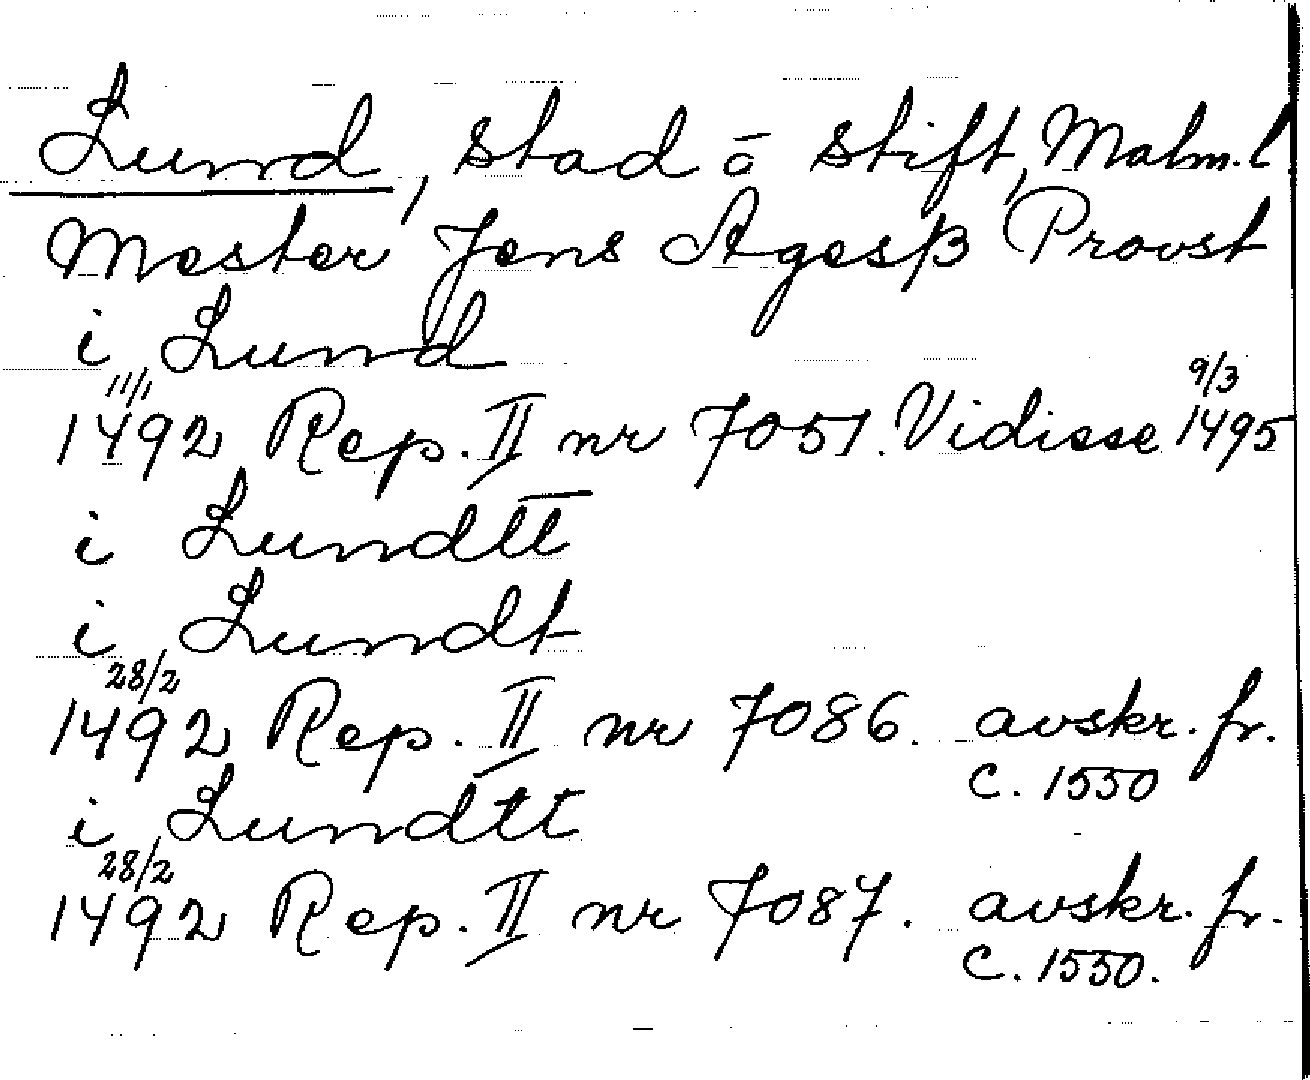 Lund, stad o stift, Malm.l
Mester Jens Agesß Provst
i Lund
11/1 1492 Rep. II nr 7051. Vidisse 9/3 1495
i Lundtt
i Lundt
28/2 1492 Rep. II nr 7086. avskr. fr. c. 1550
i Lundtt
28/2 1492 Rep. II nr 7087. avskr. fr. c. 1550.